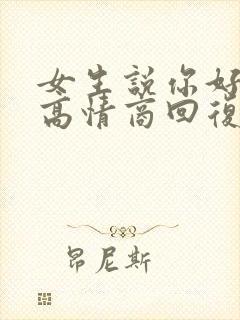 女生説你好
高情商回復
昂尼斯